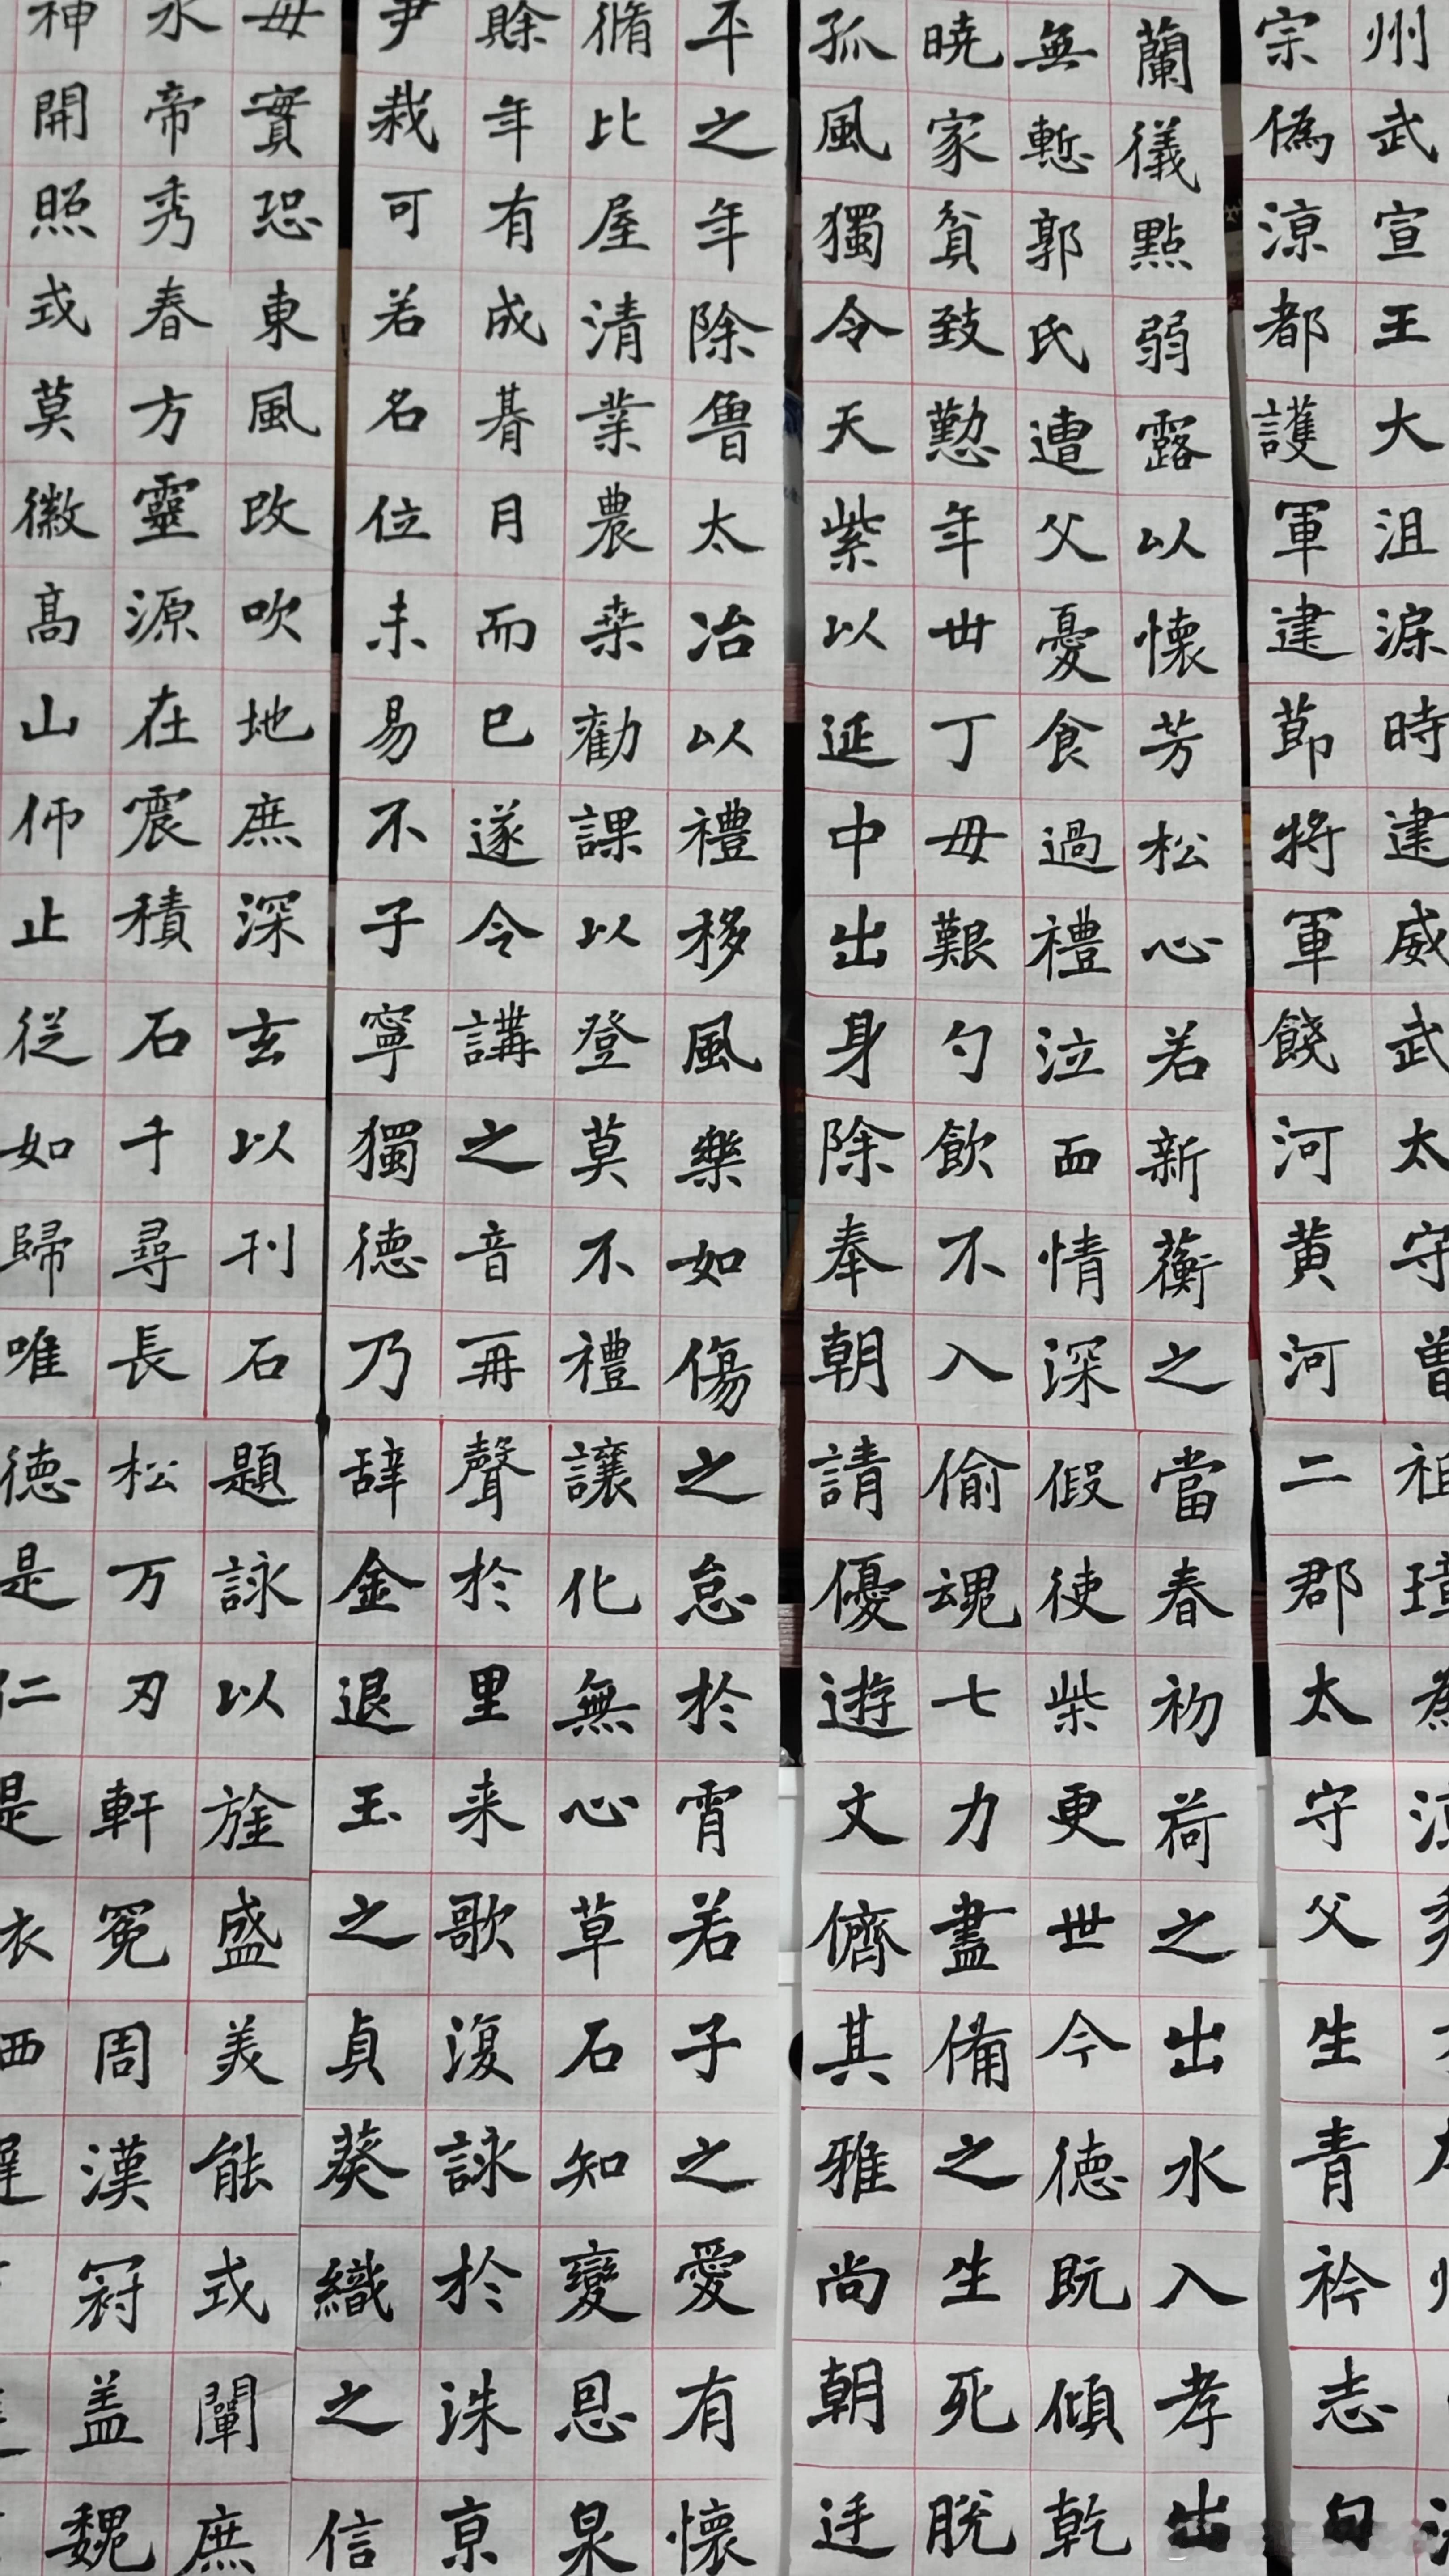 州武宣王大沮渠時建威武太守曾祖璋為
宗偽涼都護軍建節將軍饒河黃河二郡太守父生青衿志句
蘭儀點弱露以懷芳松心若新蘅之當春初荷之出水入孝出
無慙郭氏遭父憂食過禮泣面情深假使柴更世今德既傾乾
曉家貧致懃年廿丁毋艱勺飲不入偷魂七力盡備之生死脫
孤風獨令天紫以延中出身除奉朝請優遊文儕其雅尚朝廷
平之年除魯太冶以禮移風樂如傷之怠於霄若子之愛有懷
脩比屋清業農桒勸課以登莫不禮讓化無心草石知變恩泉
賖年有成朞月而已遂令講之音再聲於里来歌復詠於洙京
尹栽可若名位未易不子寧獨德乃辞金退玉之貞葵織之信
毋實恐東風改吹地庶深玄以刊石題詠以旌盛美能式闡庶
氷帝秀春方靈源在震積石千尋長松万刃軒冕周漢冠盖魏
神開照式莫徽高山仰止從如歸唯德是仁是衣西